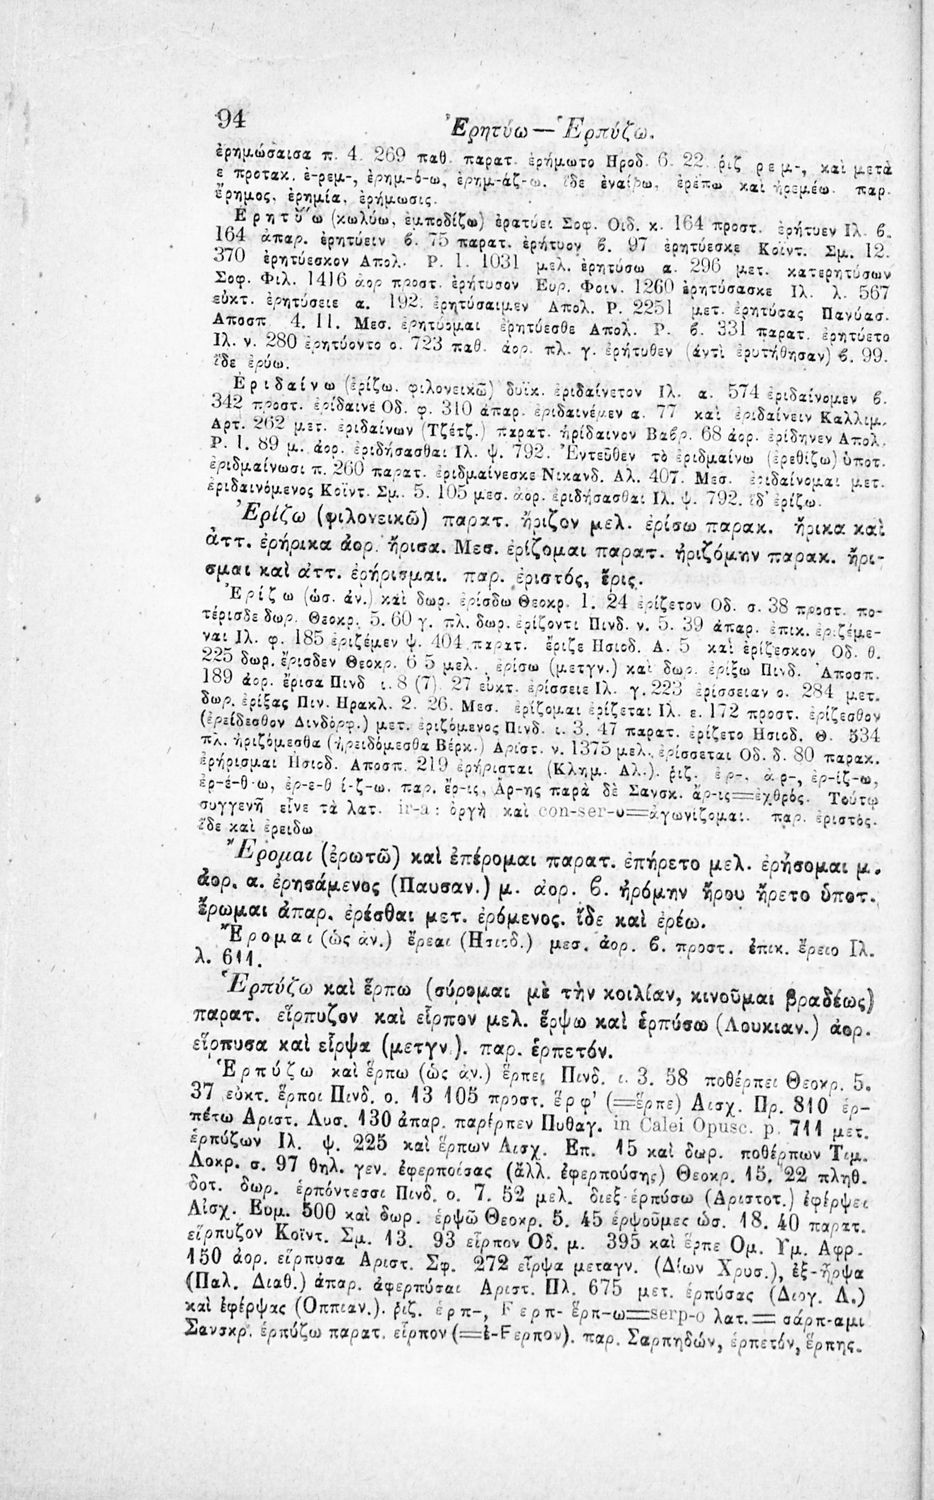 94 Ἐρητύω — Ἑρπύζω.
ἐρημώσαισα π. 4. 269 παθ. παρατ. ἐρήμωτο Ηροδ. 6. 22. ῥιζ ρεμ-, καὶ μετὰ
ε προτακ. ἐ-ρεμ-, ἐρημ-ό-ω, ἐρημ-άζ-ω. ἴδε ἐναίρω, ἐρέπω καὶ ἠρεμέω. παρ.
ἔρημος, ἐρημία, ἐρήμωσις.
Ἐρητύω (κωλύω, ἐμποδίζω) ἐρατύει Σοφ. Οιδ. κ. 164 προστ. ἐρήτυεν Ιλ. 6.
164 ἀπαρ. ἐρητύειν 6. 75 παρατ. ἐρήτυον 6. 97 ἐρητύεσκε Κοϊντ. Σμ. 12.
370 ἐρητύεσκον Απολ. Ρ. 1. 1031 μελ. ἐρητύσω α. 296 μετ. κατερητύσων
Σοφ. Φιλ. 1416 ἀορ προστ. ἐρήτυσον Ευρ. Φοιν. 1260 ἐρητύσασκε Ιλ. λ. 567
εὐκτ. ἐρητύσειε α. 192. ἐρητύσαιμεν Απολ. Ρ. 2251 μετ. ἐρητύσας Πανύασ.
Αποσπ 4. 11. Μεσ. ἐρητύομαι ἐρητύεσθε Απολ. Ρ. 6. 331 παρατ. ἐρητύετο
Ιλ. ν. 280 ἐρητύοντο ο. 723 παθ. ἀορ. πλ. γ. ἐρήτυθεν (ἀντὶ ἐρυτήθησαν) 6. 99.
ἴδε ἐρύω.
Ἐριδαίνω (ἐρίζω, φιλονεικῶ) δυϊκ. ἐριδαίνετον Ιλ. α. 574 ἐριδαίνομεν 6.
342 προστ. ἐρίδαινε Οδ. φ. 310 ἀπαρ. ἐριδαινέμεν α. 77 καὶ ἐριδαίνειν Καλλιμ.
Αρτ. 262 μετ. ἐριδαίνων (Τζέτζ.) παρατ. ἠρίδαινον Βαβρ. 68 ἀορ. ἐρίδηνεν Απολ.
Ρ. 1. 89 μ. ἀορ. ἐριδήσασθαι Ιλ. ψ. 792. Ἐντεῦθεν τὸ ἐριδμαίνω (ἐρεθίζω) ὑποτ.
ἐριδμαίνωσι π. 260 παρατ. ἐριδμαίνεσκε Νικανδ. Αλ. 407. Μεσ. ἐριδαίνομαι μετ.
ἐριδαινόμενος Κοϊντ. Σμ. 5. 105 μεσ. ἀορ. ἐριδήσασθαι Ιλ. ψ. 792. ἰδ' ἐρίζω.
Ἐρίζω (φιλονεικῶ) παρατ. ἤριζον μελ. ἐρίσω παρακ. ἤρικα καὶ
ἀττ. ἐρήρικα ἀορ. ἤρισα. Μεσ. ἐρίζομαι παρατ. ἠριζόμην παρακ. ἤρι-
σμαι καὶ ἀττ. ἐρήρισμαι. παρ. ἐριστός, ἔρις.
Ἐρίζω (ὡσ. ἀν.) καὶ δωρ. ἐρίσδω Θεοκρ. 1. 24 ἐρίζετον Οδ. σ. 38 προστ. πο-
τέρισδε δωρ. Θεοκρ. 5. 60 γ. πλ. δωρ. ἐρίζοντι Πινδ. ν. 5. 39 ἀπαρ. ἐπικ. ἐριζέμε-
ναι Ιλ. φ. 185 ἐριζέμεν ψ. 404 παρατ. ἔριζε Ησιοδ. Α. 5 καὶ ἐρίζεσκον Οδ. θ.
225 δωρ. ἔρισδεν Θεοκρ. 6 5 μελ. ἐρίσω (μετγν.) καὶ δωρ. ἐρίξω Πινδ. Ἀποσπ.
189 ἀορ. ἔρισα Πινδ ι. 8 (7) 27 εὐκτ. ἐρίσσειε Ιλ. γ. 223 ἐρίσσειαν ο. 284 μετ.
δωρ. ἐρίξας Πιν. Ηρακλ. 2. 26. Μεσ. ἐρίζομαι ἐρίζεται Ιλ. ε. 172 προστ. ἐρίζεσθον
(ἐρείδεσθον Δινδόρφ.) μετ. ἐριζόμενος Πινδ. ι. 3. 47 παρατ. ἐρίζετο Ησιοδ. Θ. 534
πλ. ἠριζόμεσθα (ἠρειδόμεσθα Βέρκ.) Αρίστ. ν. 1375 μελ. ἐρίσσεται Οδ. δ. 80 παρακ.
ἐρήρισμαι Ησιοδ. Αποσπ. 219 ἐρήρισται (Κλημ. Αλ.). ῥιζ. ἐρ-, ἀρ-, ἐρ-ίζ-ω,
ἐρ-έ-θ-ω, ἐρ-ε-θ ί-ζ-ω. παρ. ἔρ-ις, Ἄρ-ης παρὰ δὲ Σανσκ. ἄρ-ις=ἐχθρός. Τούτῳ
συγγενῆ εἶνε τὰ λατ. ir-a : ὀργὴ καὶ con-ser-υ=ἀγωνίζομαι. παρ. ἐριστός.
ἴδε καὶ ἐρειδω
Ἔρομαι (ἐρωτῶ) καὶ ἐπέρομαι παρατ. ἐπήρετο μελ. ἐρήσομαι μ.
ἀορ. α. ἐρησάμενος (Παυσαν.) μ. ἀορ. 6. ἠρόμην ἤρου ἤρετο ὑποτ.
ἔρωμαι ἀπαρ. ἐρέσθαι μετ. ἐρόμενος. ἴδε καὶ ἐρέω.
Ἔρομαι (ὡς ἀν.) ἔρεαι (Ησιοδ.) μεσ. ἀορ. 6. προστ. ἐπικ. ἔρειο Ιλ.
λ. 611.
Ἑρπύζω καὶ ἕρπω (σύρομαι μὲ τὴν κοιλίαν, κινοῦμαι βραδέως)
παρατ. εἷρπυζον καὶ εἷρπον μελ. ἕρψω καὶ ἑρπύσω (Λουκιαν.) ἀορ.
εἵρπυσα καὶ εἷρψα (μετγν.). παρ. ἑρπετόν.
Ἑρπύζω καὶ ἕρπω (ὡς ἀν.) ἕρπει Πινδ. ι. 3. 58 ποθέρπει Θεοκρ. 5.
37 εὐκτ. ἕρποι Πινδ. ο. 13 105 προστ. ἕρφ' (=ἕρπε) Αισχ. Πρ. 810 ἑρ-
πέτω Αριστ. Λυσ. 130 ἀπαρ. παρέρπεν Πυθαγ. in Calei Opusc. p. 711 μετ.
ἑρπύζων Ιλ. ψ. 225 καὶ ἕρπων Αισχ. Επ. 15 καὶ δωρ. ποθέρπων Τιμ.
Λοκρ. σ. 97 θηλ. γεν. ἐφερποίσας (ἄλλ. ἐφερπούσης) Θεοκρ. 15. 22 πληθ.
δοτ. δωρ. ἑρπόντεσσι Πινδ. ο. 7. 52 μελ. διεξ-ερπύσω (Αριστοτ.) ἐφέρψει
Αἰσχ. Ευμ. 500 καὶ δωρ. ἑρψῶ Θεοκρ. 5. 45 ἑρψοῦμες ὡσ. 18. 40 παρατ.
εἵρπυζον Κοϊντ. Σμ. 13. 93 εἷρπον Οδ. μ. 395 καὶ ἕρπε Ομ. Υμ. Αφρ.
150 ἀορ. εἵρπυσα Αριστ. Σφ. 272 εἷρψα μεταγν. (Δίων Χρυσ.), ἐξ-ῆρψα
(Παλ. Διαθ.) ἀπαρ. ἀφερπύσαι Αριστ. Πλ. 675 μετ. ἑρπύσας (Διογ. Λ.)
καὶ ἐφέρψας (Οππιαν.). ῥιζ. ἑρπ-, Ϝερπ- ἕρπ-ω=serp-o λατ.= σάρπ-αμι
Σανσκρ. ἑρπύζω παρατ. εἷρπον (=ἐ-Ϝερπον). παρ. Σαρπηδών, ἑρπετόν, ἕρπης.